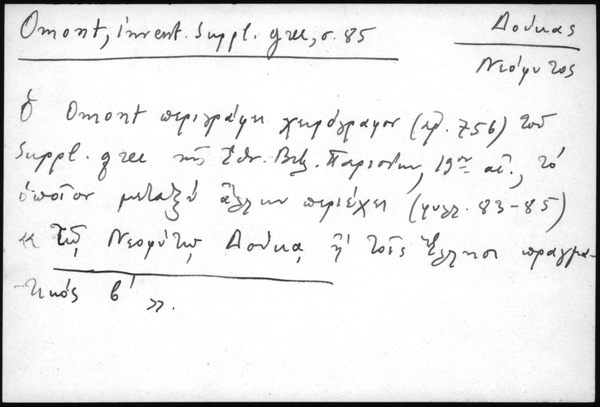 Omont, invent. Suppl. grec, σ. 85
Δούκας
Νεόφυτος
Ὁ Omont περιγράφει χειρόγραφον (ἀρ. 756) τοῦ
Suppl. grec τῆς Ἐθν. Βιβ. Παρισίων, 19ου αἰ., τὸ
ὁποῖον μεταξὺ ἄλλων περιέχει (φυλλ. 83-85)
« Τῷ Νεοφύτῳ Δούκᾳ ἢ τοῖς Ἕλλησι πραγμα-
-τικός β' ».